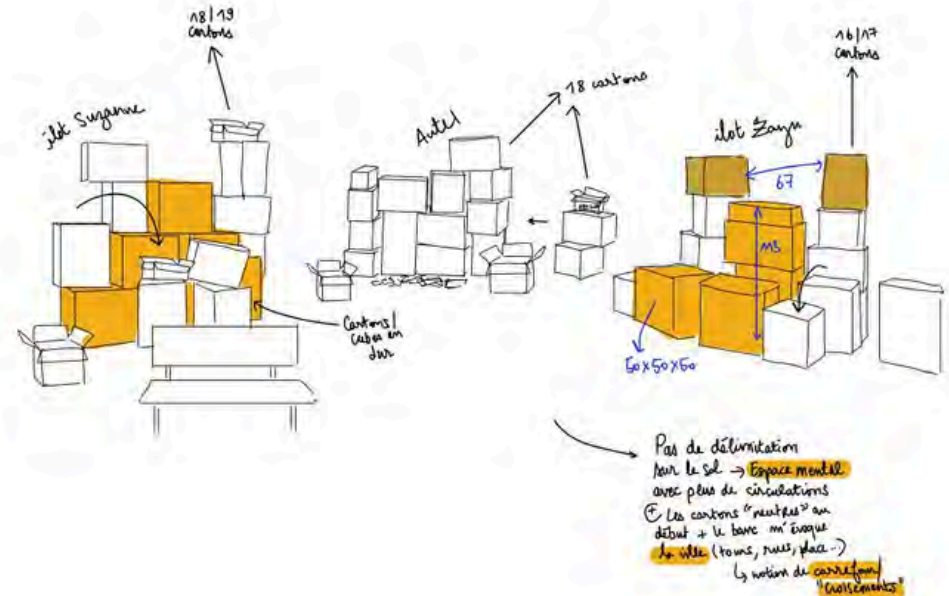 18/19
cartons
îlot Suzanne
Autel
18 cartons
16/17
cartons
îlot Zayn
67
115
50x50x50
Cartons/
cubes en
dur
Pas de délimitation
sur le sol → Espace mental
avec plus de circulations
⊕ Les cartons "neutres" au
début + le banc m'évoque
la ville (tours, rues, place..)
↳ notion de carrefour/
"croisements"